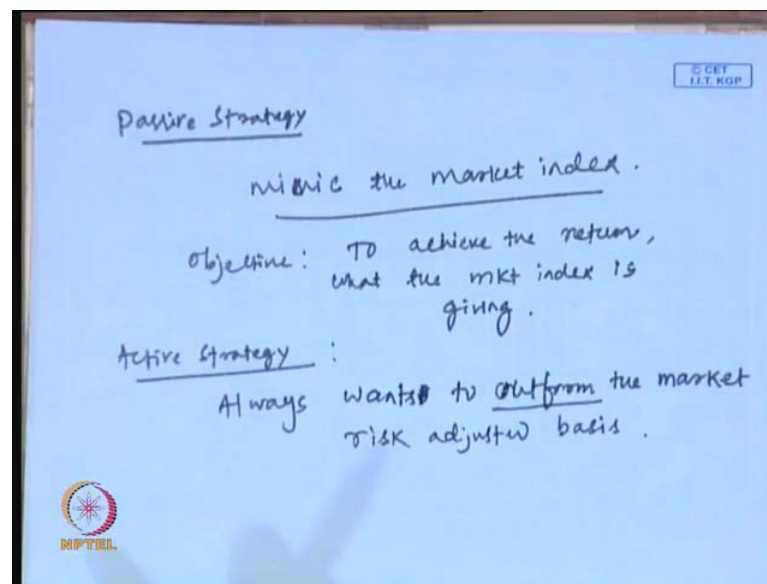 © CET
I.I.T. KGP
Passive Strategy
Mimic the market index.
Objective: To achieve the return,
what the mkt index is
giving.
Active Strategy :
Always wants to outfrom the market
risk adjusted basis.
NPTEL